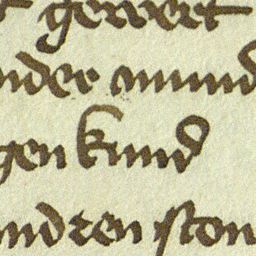 gerert
nder mund
gen kund
nd ren ston